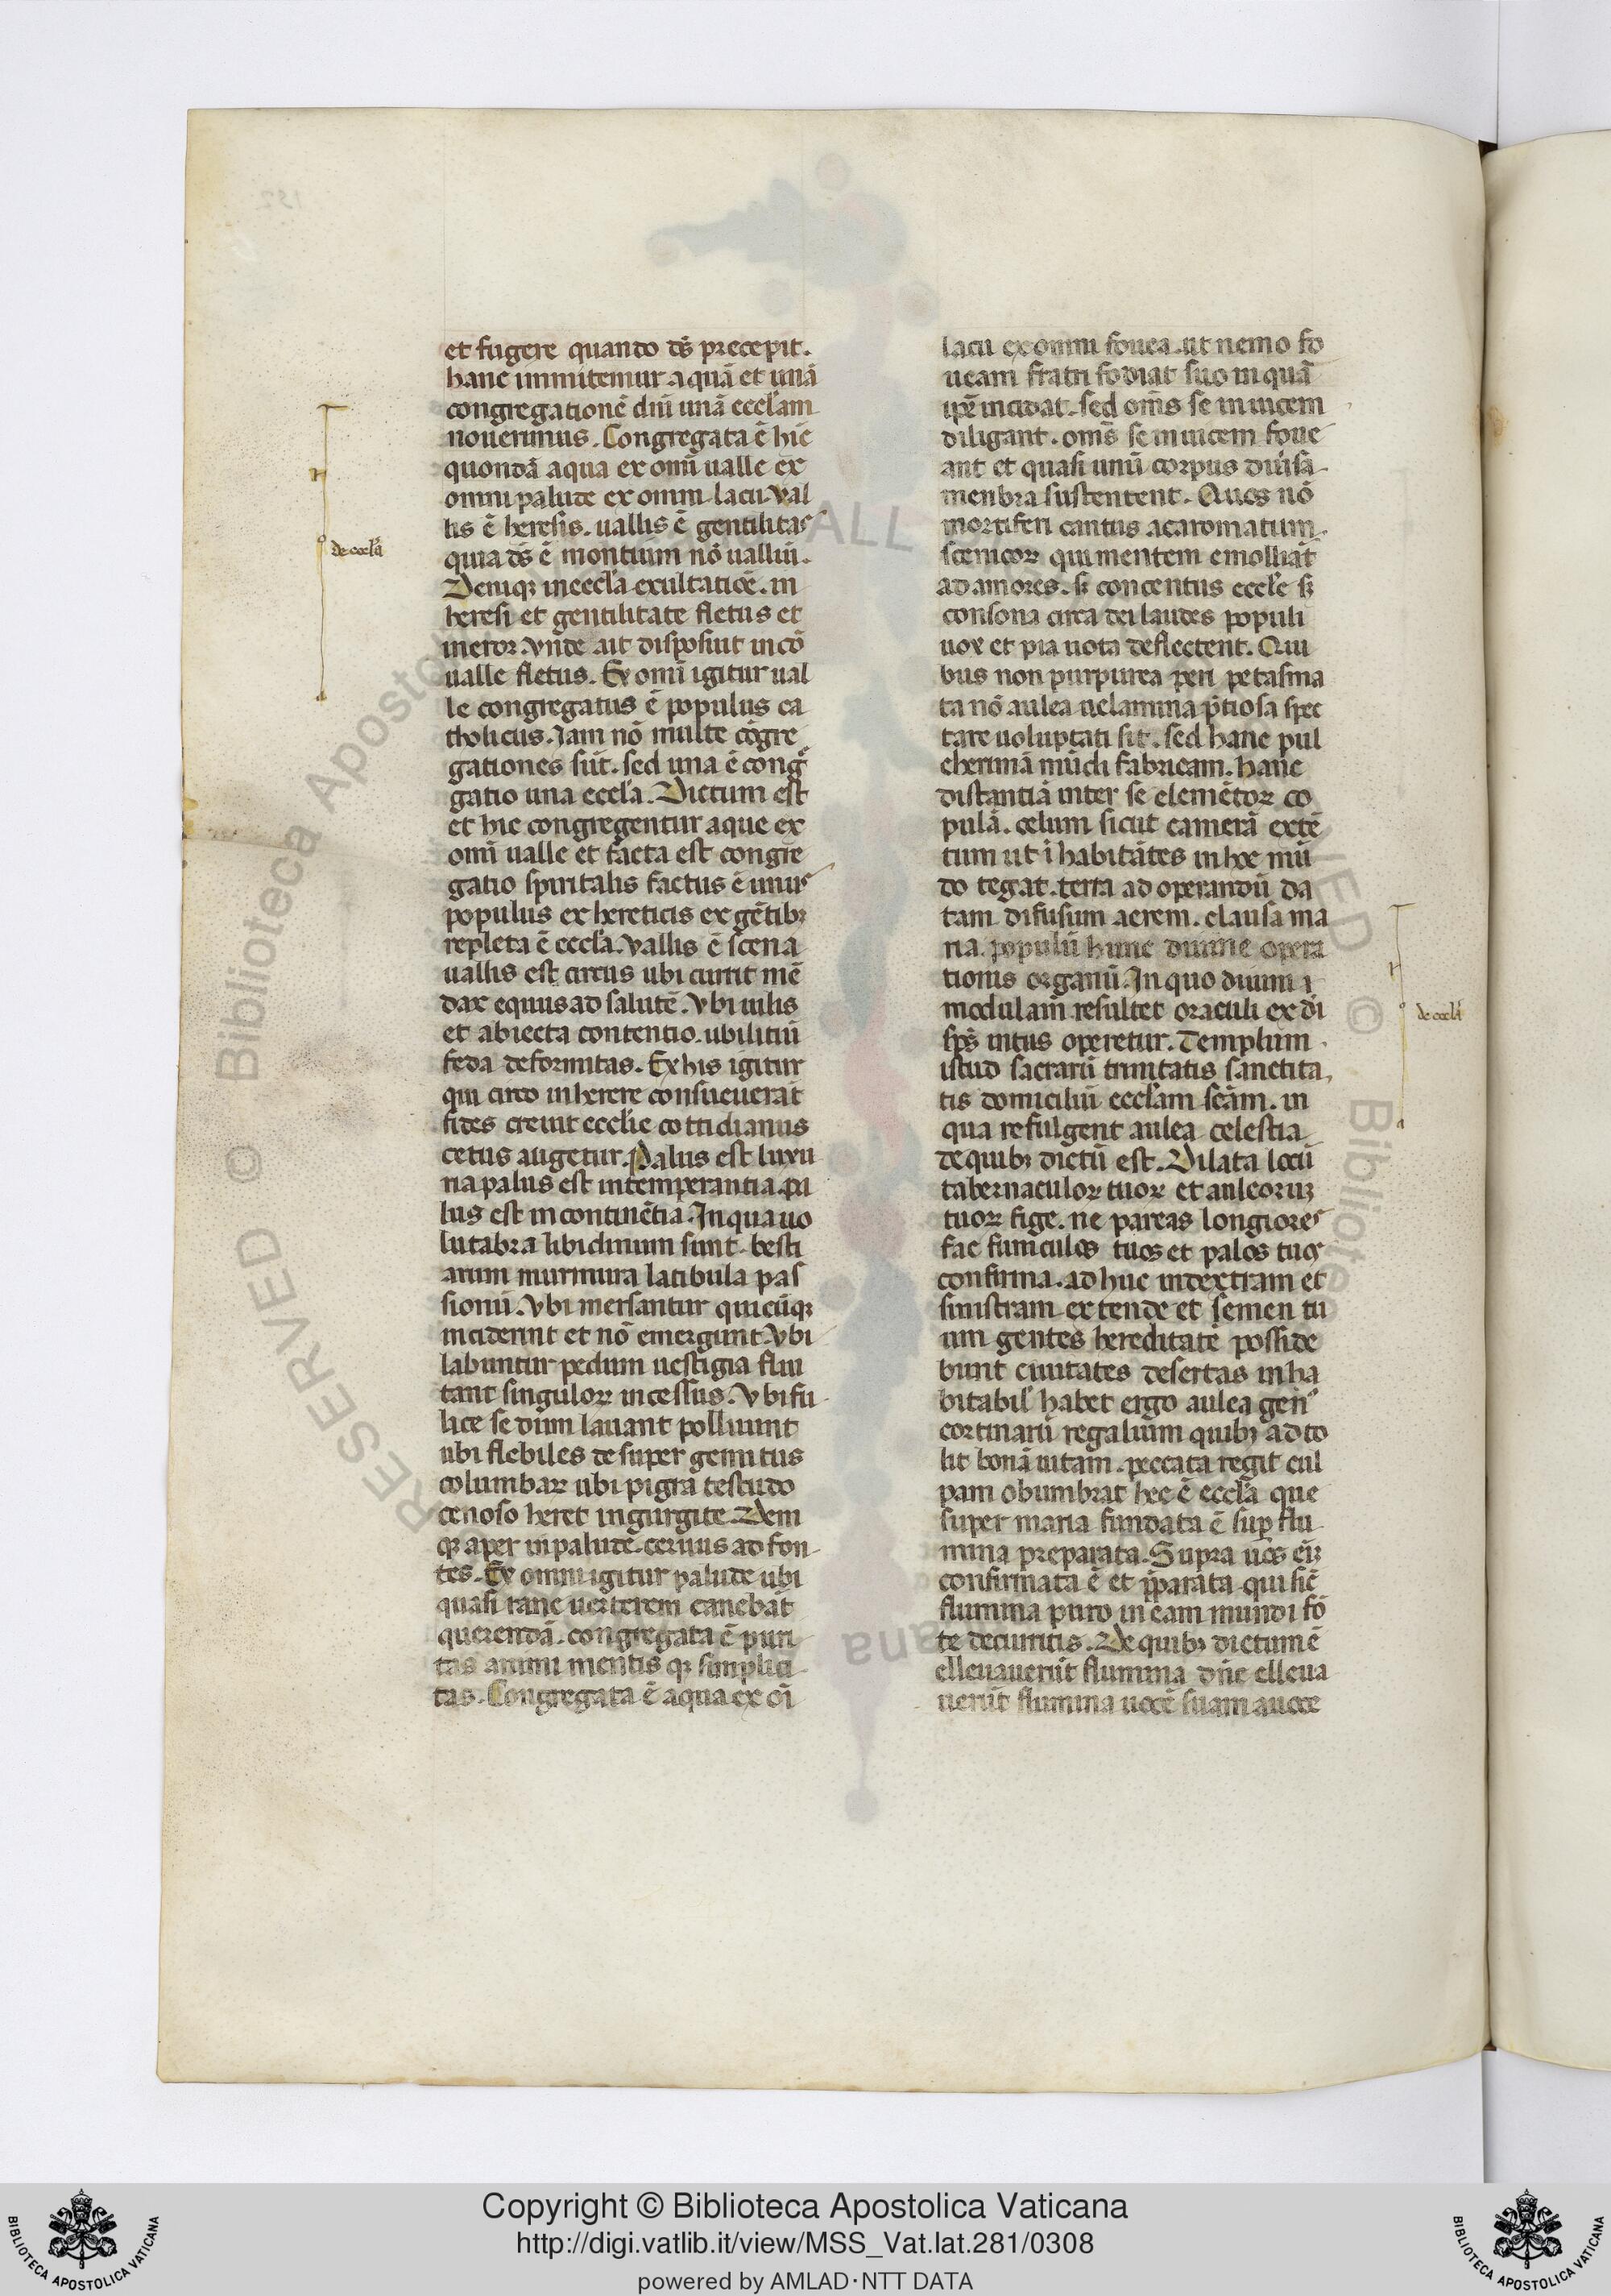 et fugere quando ds̄ precepit.
hanc immitemur aquā et unā
congregationē dn̄i unā eccl̄am
nouerimus. Congregata ē hic
quondā aqua ex om̄i ualle ex
omni palude ex omni lacu. val
lis ē heresis. uallis ē gentilitas
quia ds̄ ē montium nō ualliū.
Deniqꝫ in eccl̄a exultatio ē. in
heresi et gentilitate fletus et
meror. vnde ait disposuit in cō
ualle fletus. Ex om̄i igitur ual
le congregatus ē populus ca
tholicus. Iam nō multe cōgre
gationes sūt. sed una ē congͤ
gatio una eccl̄a. Dictum est
et hic congregentur aque ex
om̄i ualle et facta est congre
gatio spiritalis factus ē unus
populus ex hereticis ex gētibꝫ
repleta ē eccl̄a. vallis ē scena
uallis est circus ubi currit mē
dax equus ad salutē. vbi uilis
et abiecta contentio. ubi litiū
feda deformitas. Ex his igitur
qui circo inherere consueuerāt
fides creuit eccl̄ie cottidianus
cetus augetur. Palus est luxu
ria palus est intemperantia. pa
lus est incontinētia. In qua uo
lutabra libidinum sunt. besti
arum murmura latibula pas
sionū. vbi mersantur quicūqꝫ
inciderint et nō emergunt. vbi
labuntur pedum uestigia flui
tant singuloꝝ incessus. vbi fu
lice se dum lauant polluunt
ubi flebiles desuper gemitus
columbaꝝ ubi pigra testudo
cenoso heret in gurgite. Deni
qꝫ aper in palude. ceruus ad fon
tes. Ex omni igitur palude ubi
quasi rane ueterem canebāt
querendā. congregata ē puri
tas animi mentis qꝫ simplici
tas. Congregata ē aqua ex oī
lacu ex omni fouea. ut nemo fo
ueam fratri fodiat suo in quā
ip̄e incidat. sed om̄s se inuicem
diligant. om̄s se inuicem foue
ant et quasi unū corpus diuisa
menbra sustentent. Quos nō
mortiferi cantus acaromatum
scenicoꝝ qui mentem emolliāt
ad amores. sꝫ concentus eccl̄e sꝫ
consona circa dei laudes populi
uox et pia uota deflectent. Qui
bus non purpurea peri petasma
ta nō aulea uelamina p̄tiosa spec
tare uoluptati sit. sed hanc pul
cherimā mūdi fabricam. hanc
distantiā inter se elemētoꝝ co
pulā. celum sicut camerā extē
tum ut ī habitātes in hoc mū
do tegat. terrā ad operandū da
tam. difusum aerem. clausa ma
ria. populū hunc diuine opera
tionis organū. In quo diuini
modulam̄ resultet oraculi ex di
sp̄s intus operetur. Templum
istud sacrariū trinitatis sanctita
tis domiciliū eccl̄am sc̄am. in
qua refulgent aulea celestia
de quibꝫ dictū est. Dilata locū
tabernaculoꝝ tuoꝝ et auleorum
tuoꝝ fige. ne parcas longiores
fac funiculos tuos et palos tuos
confirma. adhuc in dextram et
sinistram extende et semen tu
um gentes hereditate posside
bunt ciuitates desertas inha
bitabis̄ habet ergo aulea gen̄
cortinarū regalium quibꝫ adto
lit bonā uitam. peccata tegit cul
pam obumbrat hec ē eccl̄a que
super maria fundata ē sup̱ flu
mina preparata. Supra uos eiꝫ
confirmata ē et p̄parata qui sic̄
flumina puro in eam mundi fō
te decuritis. De quibꝫ dictum ē
elleuauerūt flumina dn̄e elleua
uerūt flumina uocē suam auoce
de eccl̄ia
de eccl̄ia
Copyright © Biblioteca Apostolica Vaticana
http://digi.vatlib.it/view/MSS_Vat.lat.281/0308
powered by AMLAD·NTT DATA
BIBLIOTECA APOSTOLICA VATICANA
BIBLIOTECA APOSTOLICA VATICANA